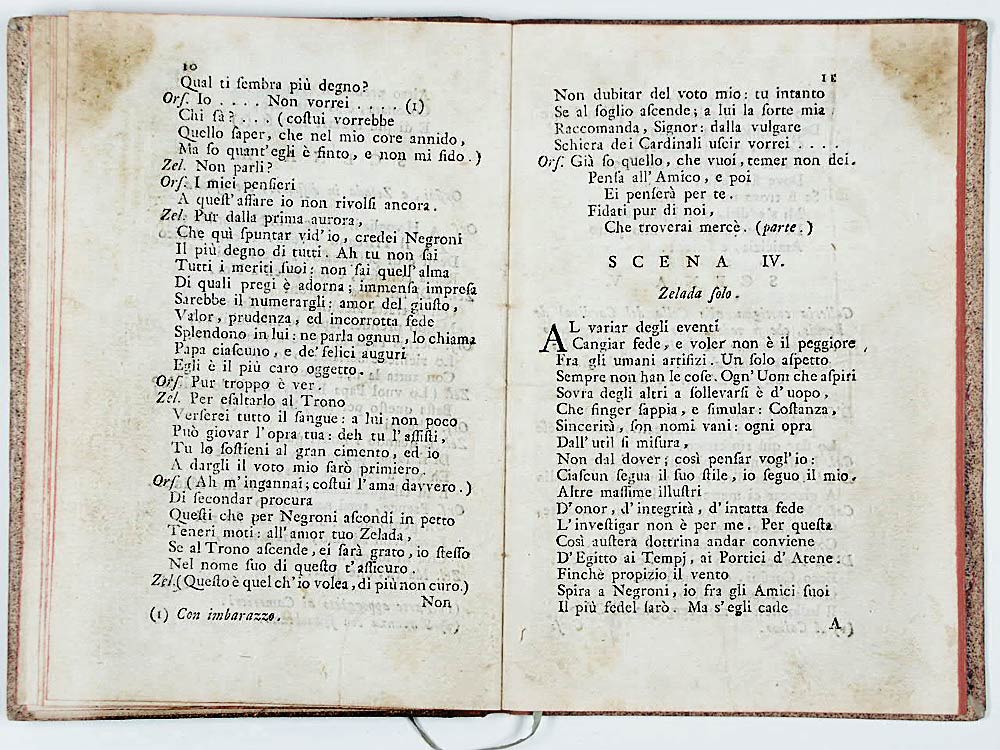 10
Qual ti ſembra più degno?
Orſ. Io . . . . Non vorrei . . . . (1)
Chi ſà? . . . (coſtui vorrebbe
Quello ſaper, che nel mio core annido,
Ma ſo quant'egli è finto, e non mi fido.)
Zel. Non parli?
Orſ. I miei penſieri
A queſt'affare io non rivolſi ancora.
Zel. Pur dalla prima aurora,
Che quì ſpuntar vid'io, credei Negroni
Il più degno di tutti. Ah tu non ſai
Tutti i meriti ſuoi: non ſai quell'alma
Di quali pregi è adorna; immenſa impreſa
Sarebbe il numerargli: amor del giuſto,
Valor, prudenza, ed incorrotta fede
Splendono in lui: ne parla ognun, lo chiama
Papa ciaſcuno, e de' felici auguri
Egli è il più caro oggetto.
Orſ. Pur troppo è ver.
Zel. Per eſaltarlo al Trono
Verſerei tutto il ſangue: a lui non poco
Può giovar l'opra tua: deh tu l'aſſiſti,
Tu lo ſoſtieni al gran cimento, ed io
A dargli il voto mio ſarò primiero.
Orſ. (Ah m'ingannai; coſtui l'ama davvero.)
Di ſecondar procura
Queſti che per Negroni aſcondi in petto
Teneri moti: all'amor tuo Zelada,
Se al Trono aſcende, ei ſarà grato, io ſteſſo
Nel nome ſuo di queſto t'aſſicuro.
Zel. (Queſto è quel ch'io volea, di più non curo.)
Non
(1) Con imbarazzo.
11
Non dubitar del voto mio: tu intanto
Se al ſoglio aſcende; a lui la ſorte mia
Raccomanda, Signor: dalla vulgare
Schiera dei Cardinali uſcir vorrei . . . .
Orſ. Già ſo quello, che vuoi, temer non dei.
Penſa all'Amico, e poi
Ei penſerà per te.
Fidati pur di noi,
Che troverai mercè. (parte.)
SCENA IV.
Zelada ſolo.
AL variar degli eventi
Cangiar fede, e voler non è il peggiore
Fra gli umani artifizi. Un ſolo aſpetto
Sempre non han le coſe. Ogn'Uom che aſpiri
Sovra degli altri a ſollevarſi è d'uopo,
Che finger ſappia, e ſimular: Coſtanza,
Sincerità, ſon nomi vani: ogni opra
Dall'util ſi miſura,
Non dal dover; così penſar vogl'io:
Ciaſcun ſegua il ſuo ſtile, io ſeguo il mio.
Altre maſſime illuſtri
D'onor, d'integrità, d'intatta fede
L'inveſtigar non è per me. Per queſta
Così auſtera dottrina andar conviene
D'Egitto ai Tempj, ai Portici d'Atene.
Finchè propizio il vento
Spira a Negroni, io fra gli Amici ſuoi
Il più fedel ſarò. Ma s'egli cade
A